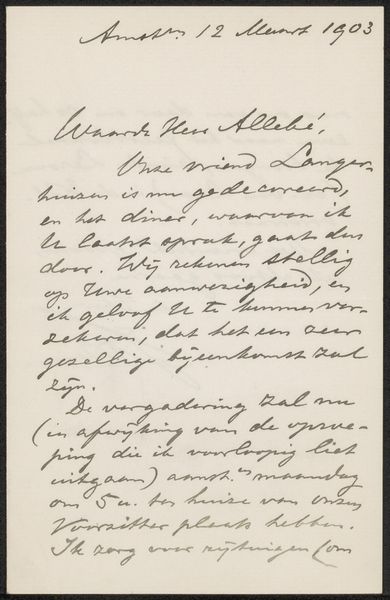 Amstm 12 Maart 1903
Waarde Heer Allebé,
Onze vriend Langer-
huizen is nu gedecoreerd,
en het diner, waarvan ik
U laatst sprak, gaat dus
door. Wij rekenen stellig
op Uwe aanwezigheid, en
ik geloof U te kunnen ver-
zekeren, dat het een zeer
gezellige bijeenkomst zal
zijn.
De vergadering zal nu
(in afwijking van de oproe-
ping die ik voorloopig liet
uitgaan) aanst.en maandag
om 5 u. ten huize van onzen
Voorzitter plaats hebben.
Ik zorg voor rijtuigen (om